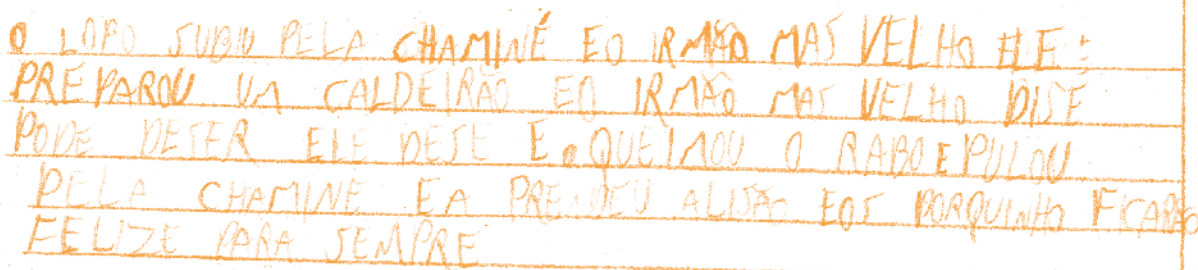 O LOPO SUBIU PELA CHAMINÉ EO IRMÃO MAS VELHO ELE :
PREPAROU UM CALDEIRÃO EO IRMÃO MAS VELHO DISE
PODE DESER ELE DESE E QUEIMOU O RABO E PULOU
PELA CHAMINE EA PRENDEU ALISÃO EOS PORQUINHO FICARÃO
FELIZE PARA SEMPRE